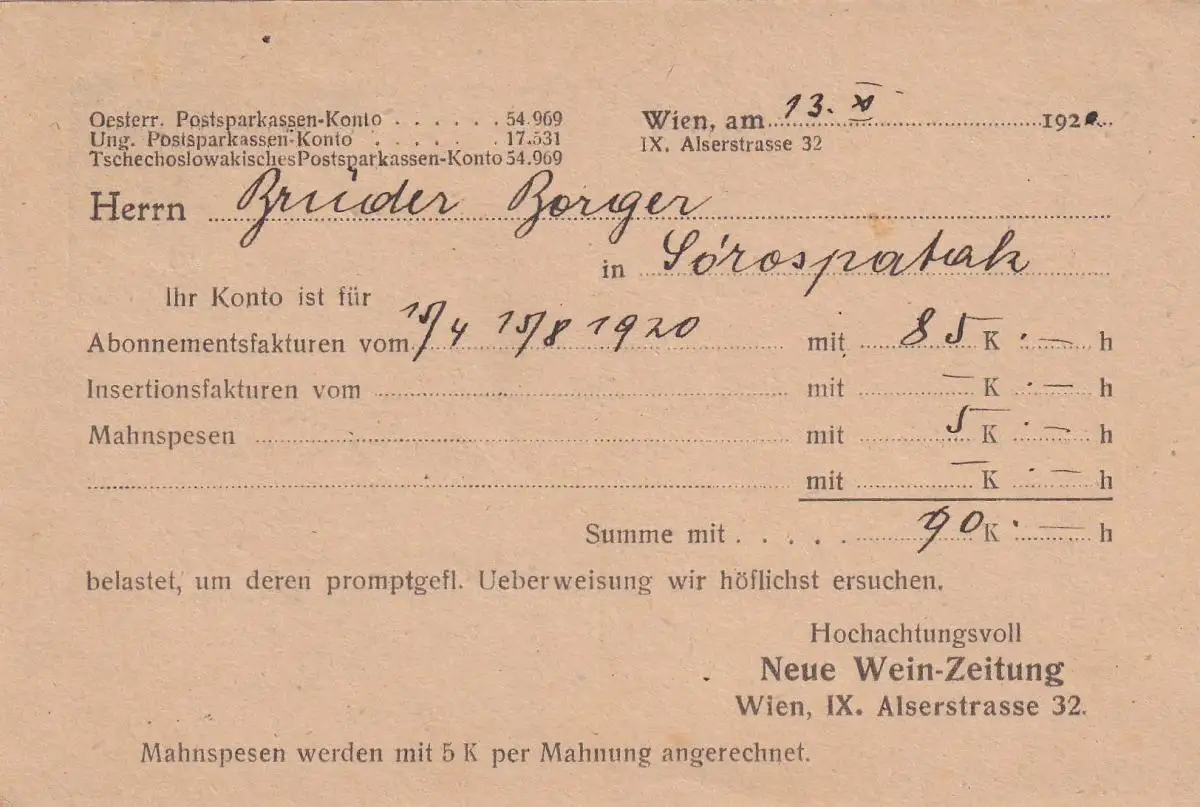 Oesterr. Postsparkassen-Konto . . . . . . 54.969
Ung. Postsparkassen-Konto . . . . . . 17.531
Tschechoslowakisches Postsparkassen-Konto 54.969
Wien, am 13. XI 1920
IX. Alserstrasse 32
Herrn Brüder Borger
in Sórospatak
Ihr Konto ist für
Abonnementsfakturen vom 15/4 15/8 1920 mit 85 K · — h
Insertionsfakturen vom mit — K · — h
Mahnspesen mit 5 K · — h
mit — K · — h
Summe mit . . . . . 90 K · — h
belastet, um deren promptgefl. Ueberweisung wir höflichst ersuchen.
Hochachtungsvoll
Neue Wein-Zeitung
Wien, IX. Alserstrasse 32.
Mahnspesen werden mit 5 K per Mahnung angerechnet.